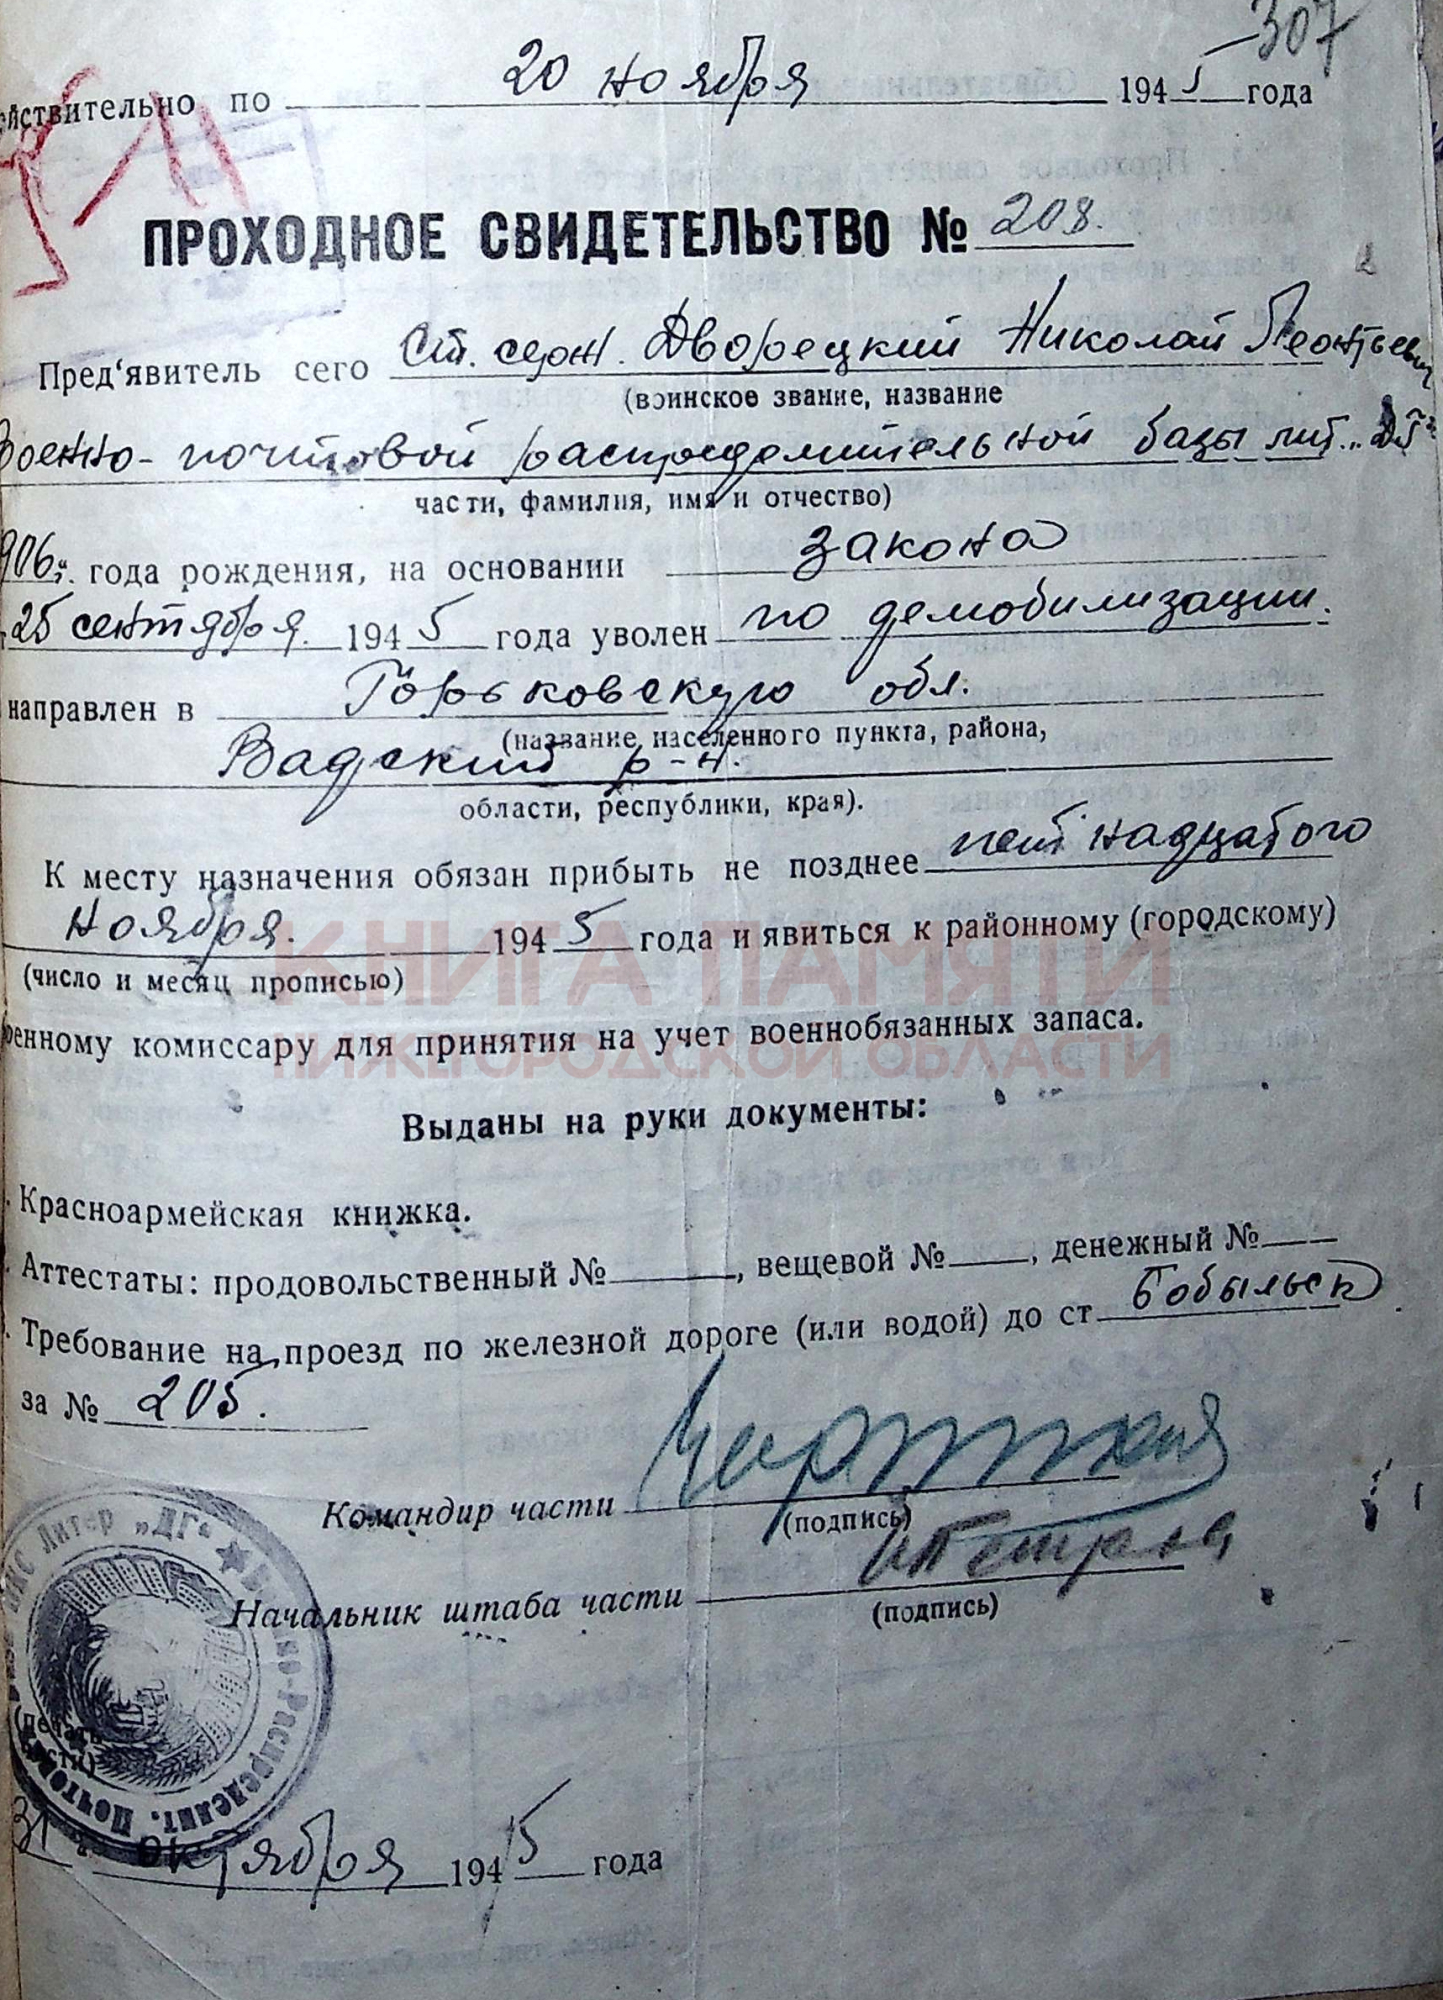 307
ействительно по 20 ноября 1945 года
ПРОХОДНОЕ СВИДЕТЕЛЬСТВО № 208.
Пред‘явитель сего Ст. серж. Дворецкий Николай Леонтьевич
(воинское звание, название
Военно-почтовой распределительной базы лит.
части, фамилия, имя и отчество)
906 г. года рождения, на основании закона
25 сентября 1945 года уволен по демобилизации.
направлен в Горьковскую обл.
(название населенного пункта, района,
Вадский р-н.
области, республики, края).
К месту назначения обязан прибыть не позднее пятнадцатого
ноября. 1945 года и явиться к районному (городскому)
(число и месяц прописью)
военному комиссару для принятия на учет военнообязанных запаса.
КНИГА ПАМЯТИ
НИЖЕГОРОДСКОЙ ОБЛАСТИ
Выданы на руки документы:
Красноармейская книжка.
Аттестаты: продовольственный №, вещевой №, денежный №
Требование на проезд по железной дороге (или водой) до ст Бобыльск
за № 205.
Командир части
(подпись)
Начальник штаба части
(подпись)
Литер „ДГ“
Распределит. Почтов
(печать
части)
31 октября 1945 года